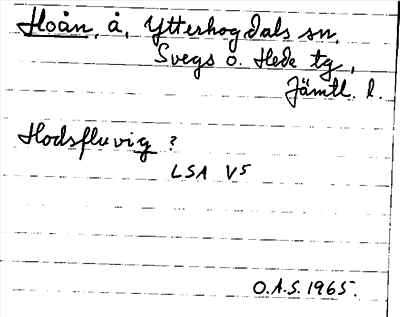 Hoån, å, Ytterhogdals sn,
Svegs o. Hede tg,
Jämtl. l.
Hodsfluvig ?
LSA V5
O.A.S. 1965.